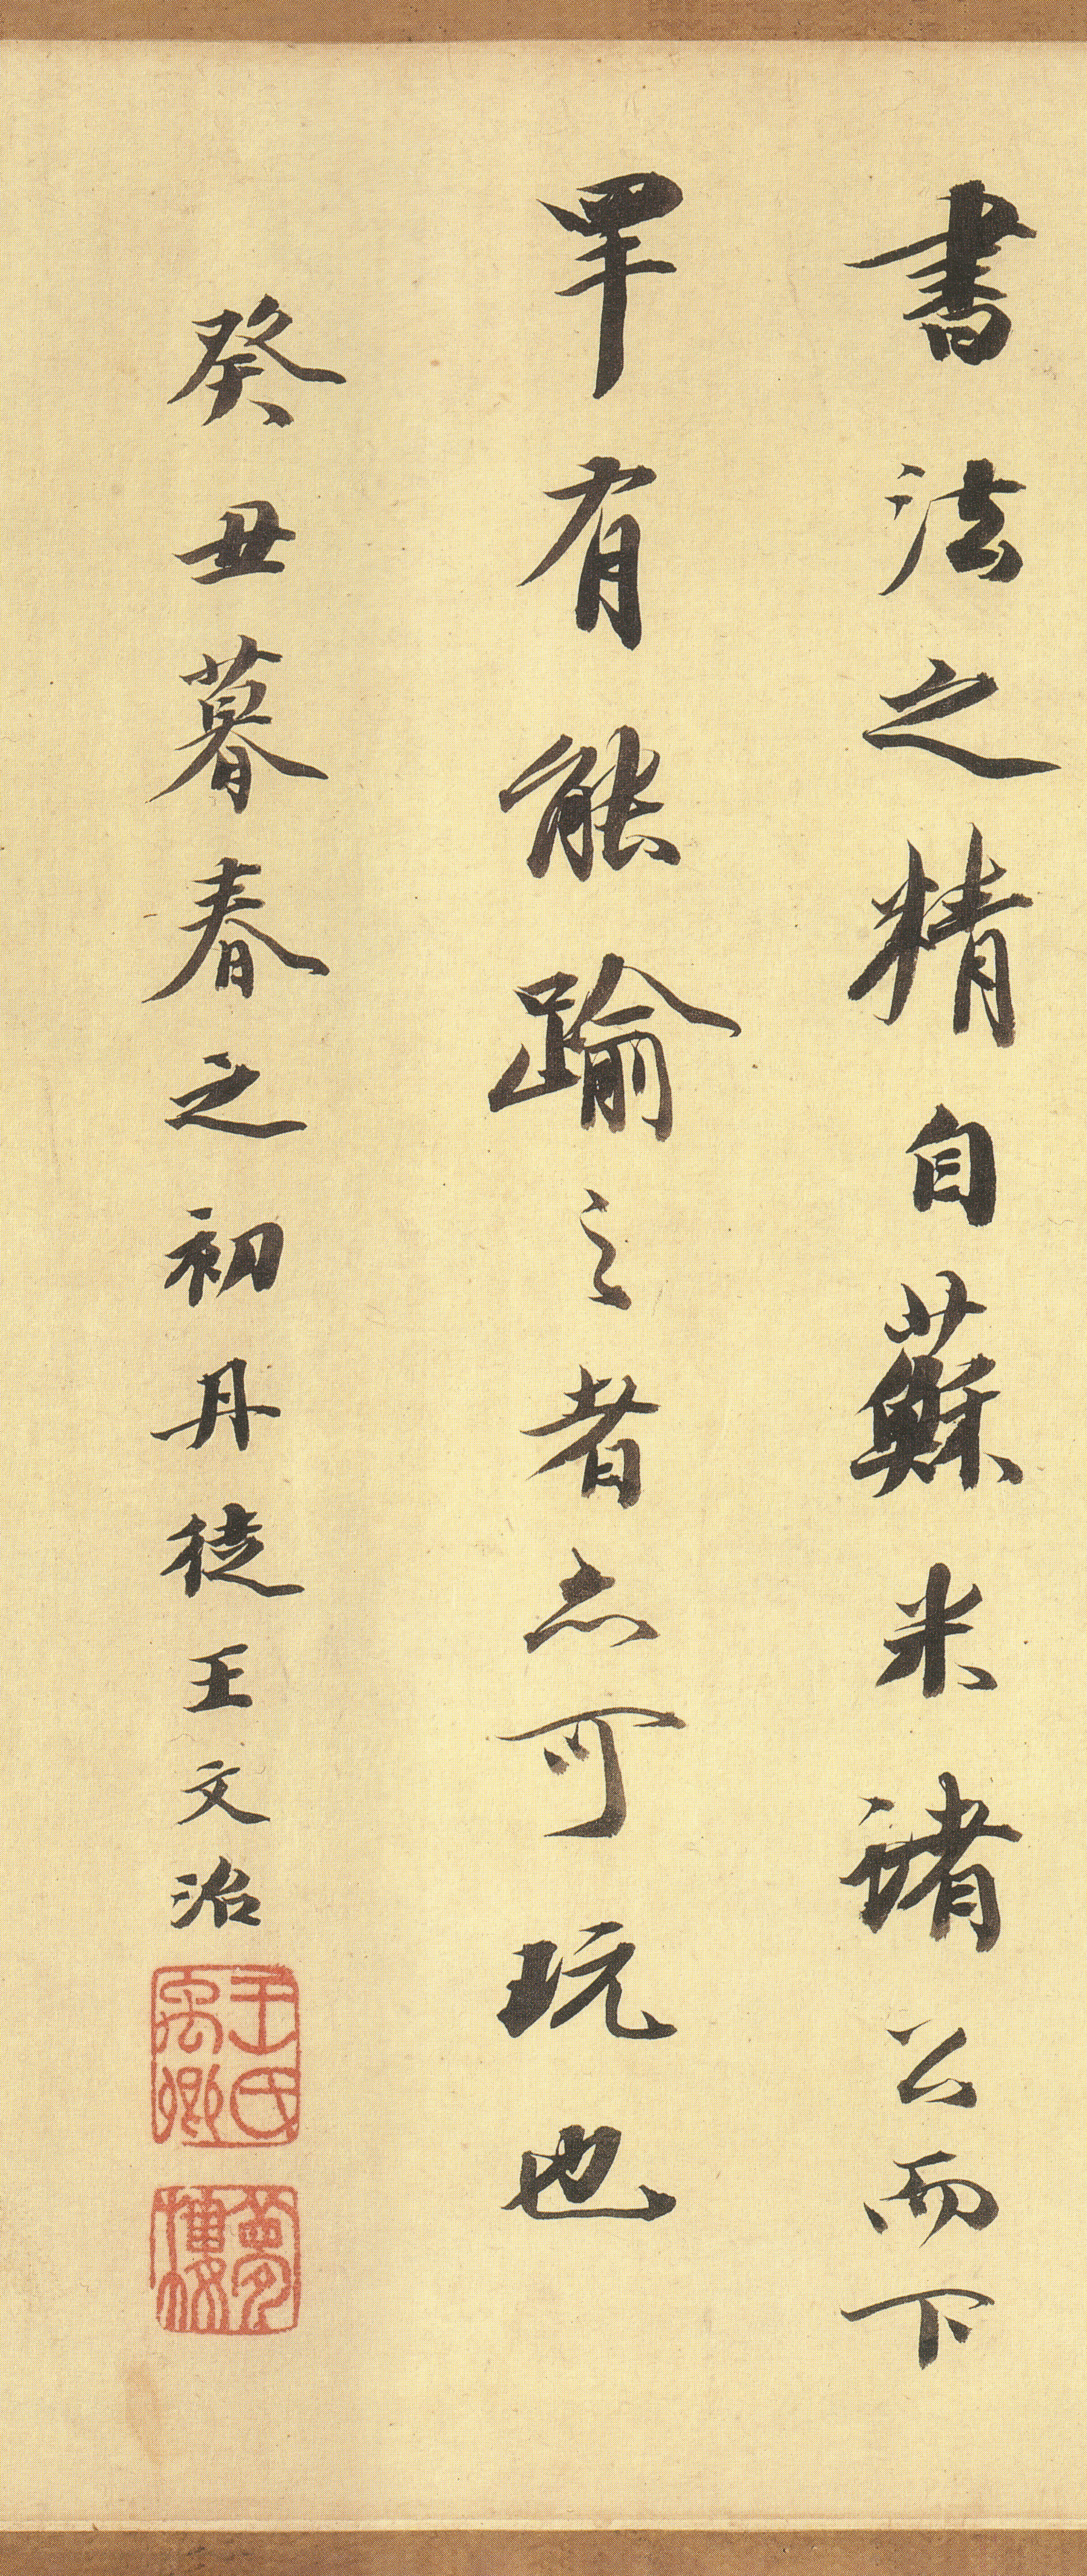 書法之精自蘇米諸公而下
罕有能踰之者亦可玩也
癸丑暮春之初丹徒王文治
王氏禹卿
夢樓